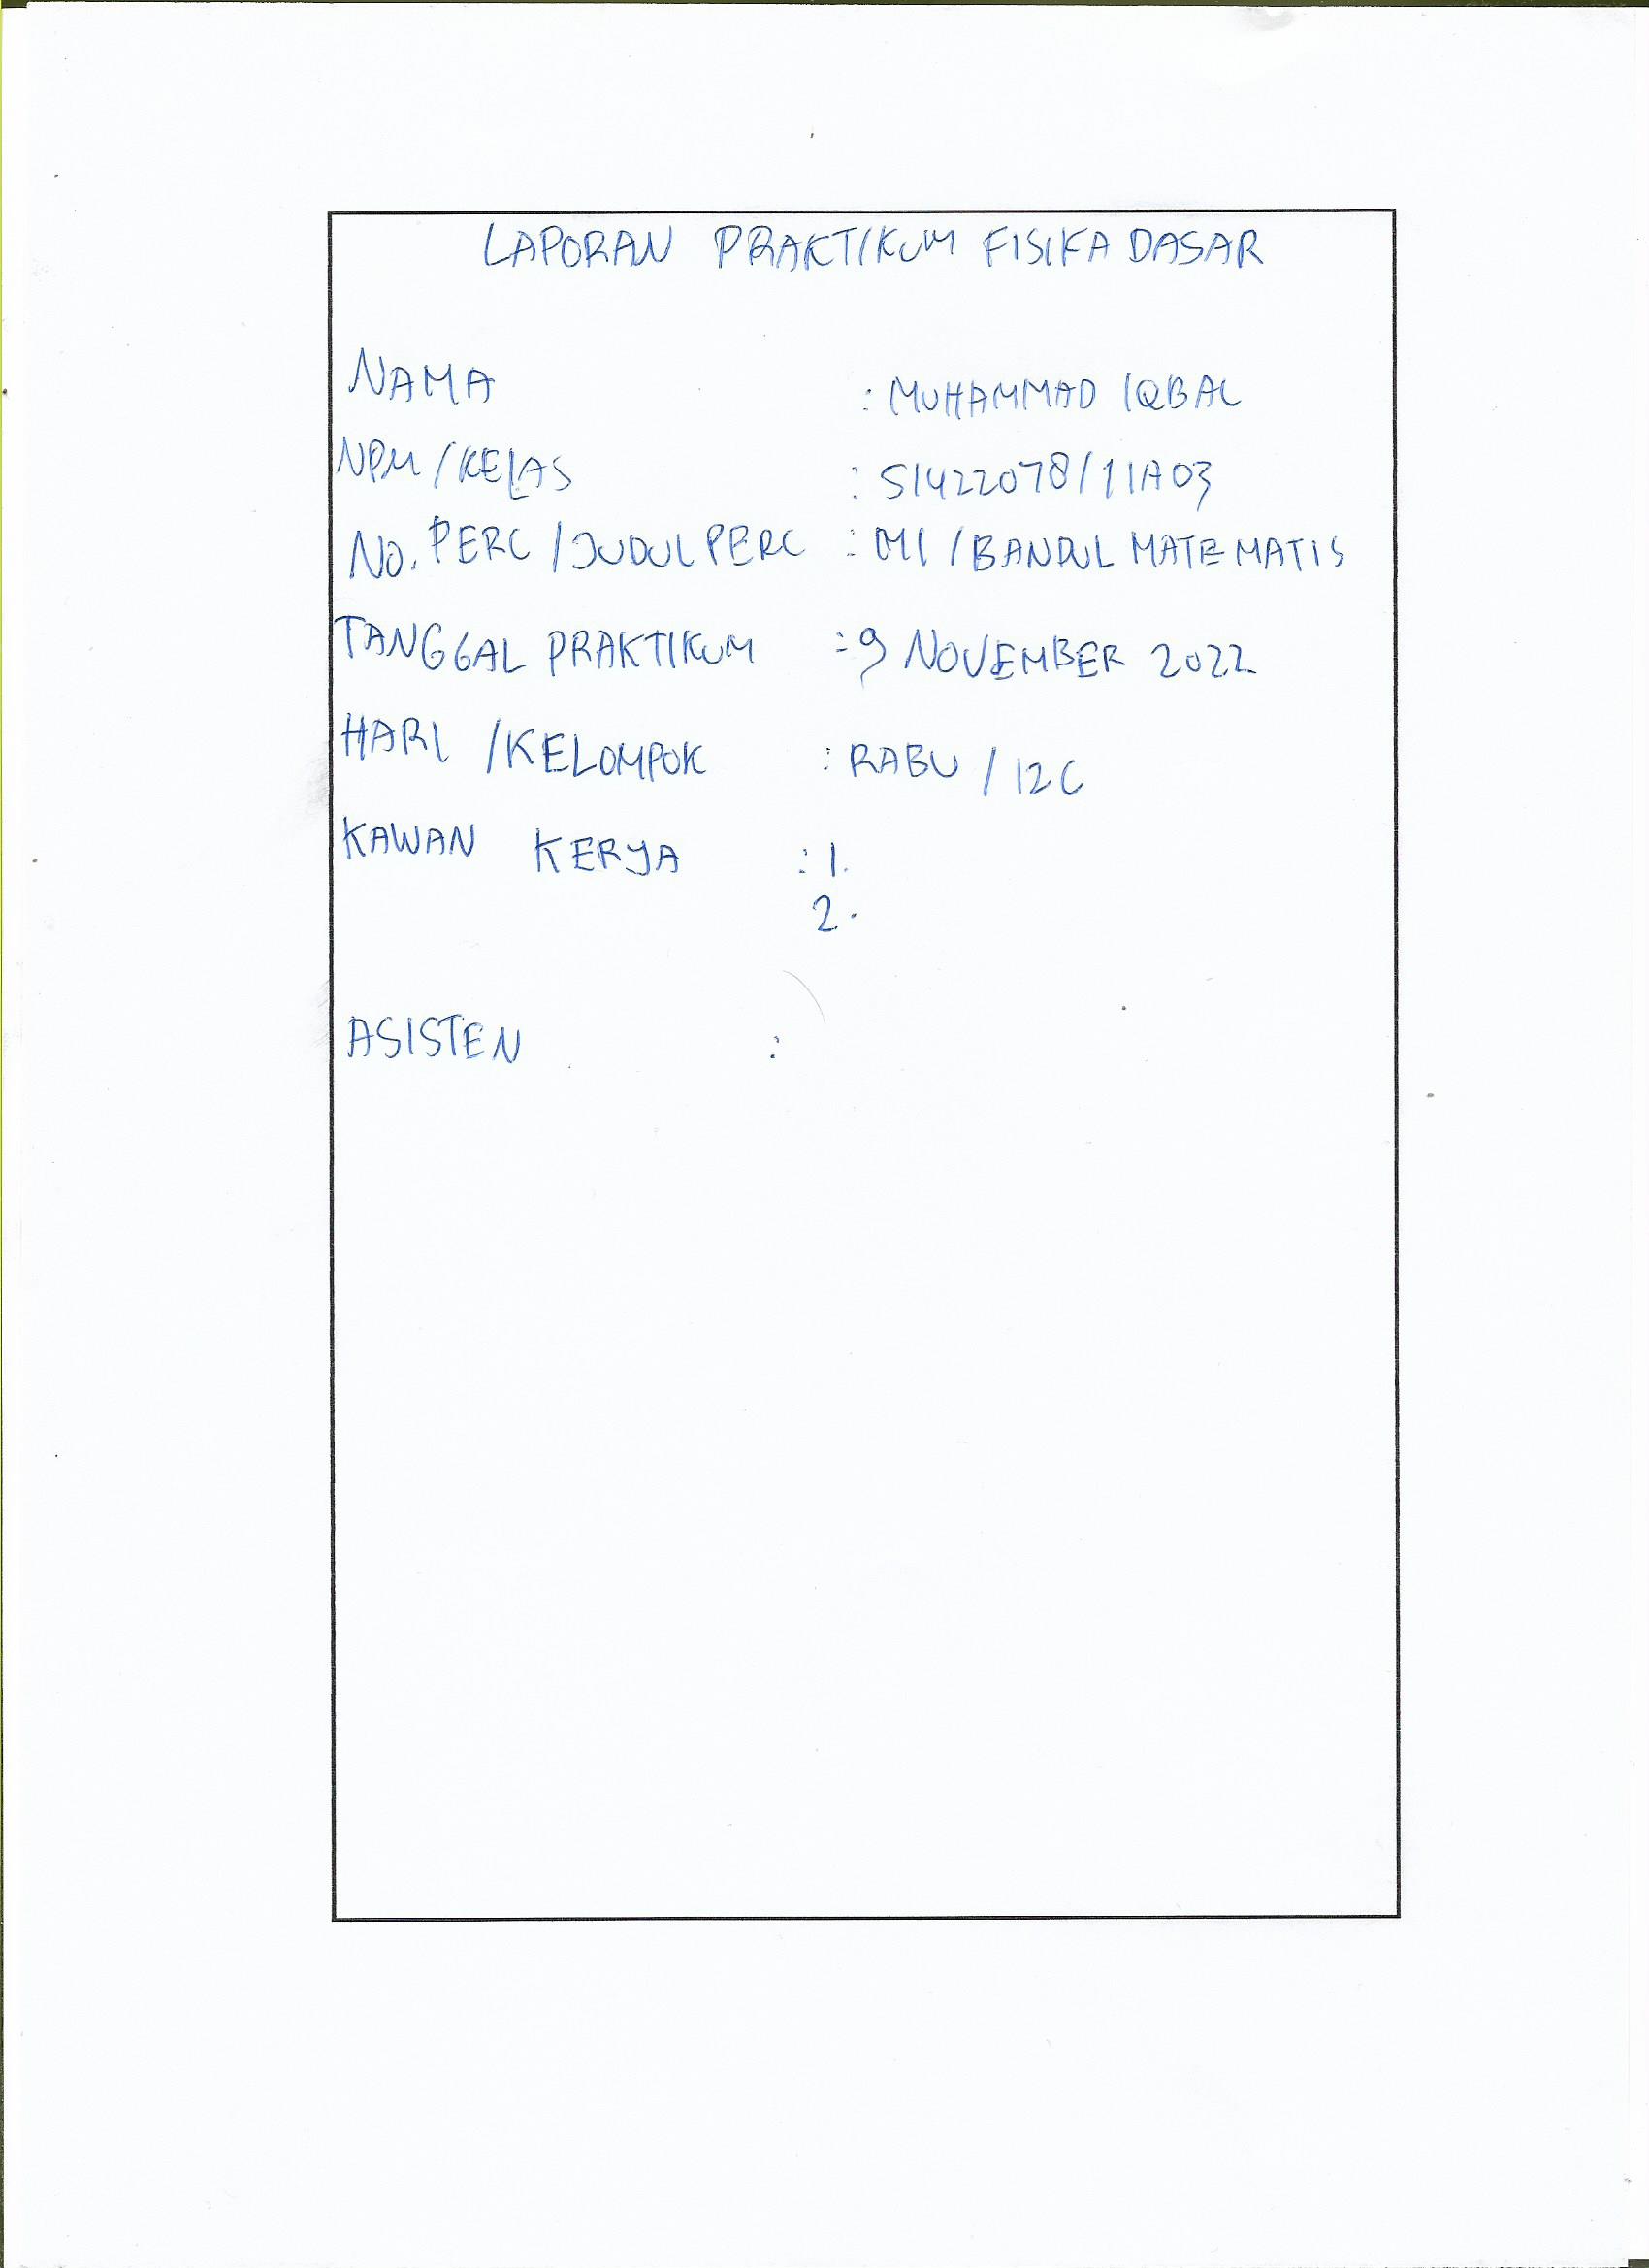 LAPORAN PRAKTIKUM FISIKA DASAR
NAMA : MUHAMMAD IQBAL
NPM / KELAS : 51422078 / 11A03
NO. PERC / JUDUL PERC : M1 / BANDUL MATEMATIS
TANGGAL PRAKTIKUM : 9 NOVEMBER 2022
HARI / KELOMPOK : RABU / 12C
KAWAN KERJA : 1.
2.
ASISTEN :